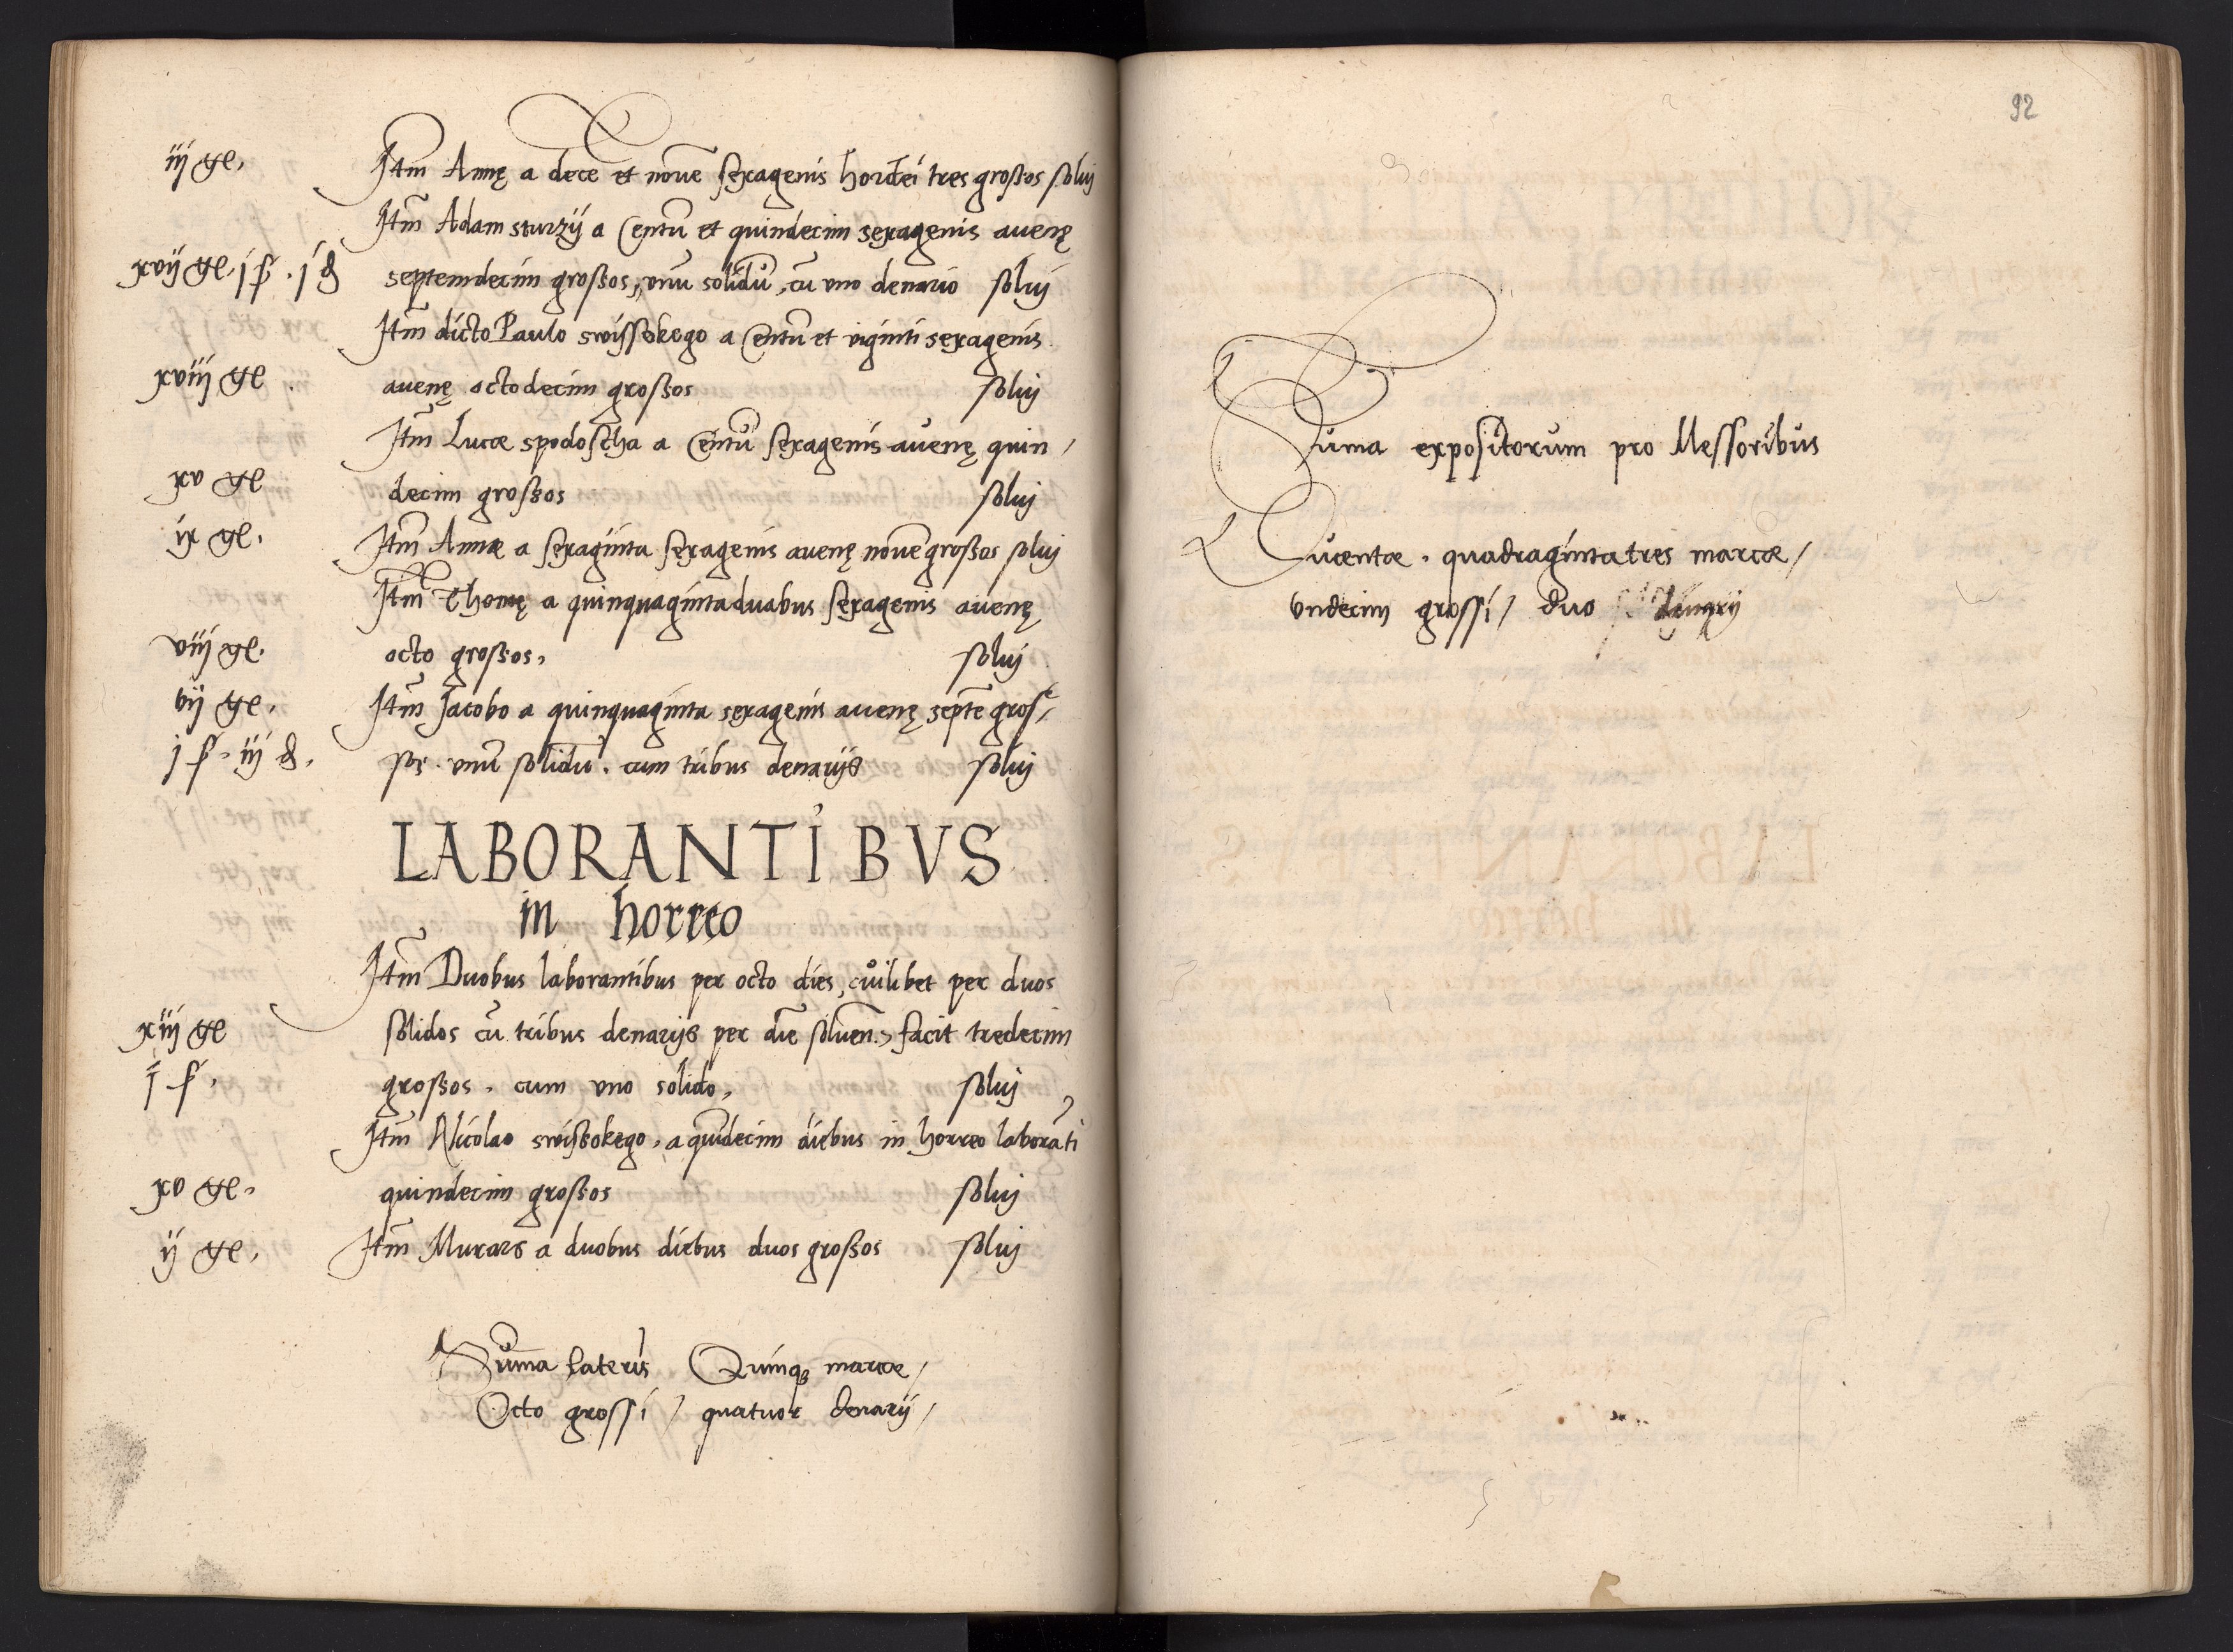 iij gr.
Itm̄ Annę a dece̅ et nove̅ sexagenis hordei tres grossos solvj
Itm̄ Adam sturzij a Centū et quindecim sexagenis avenę
xvij gr. j ß. j d
septemdecim grossos, vnū solidū, cū vno denario solvj
Itm̄ dicto Paulo swissokego a Centū et viginti sexagenis
xviij gr.
avenę octodecim grossos solvj
Itm̄ Lucæ spodoscha a Centū sexagenis avenę quin/
xv gr
decim grossos solvj
ix gr.
Itm̄ Annæ a sexaginta sexagenis avenę nove̅ grossos solvj
Itm̄ Thomę a quinquagintaduabus sexagenis avenę
viij gr.
octo grossos, solvj
vij gr.
Itm̄ Jacobo a quinquaginta sexagenis avenę septe̅ gros/
j ß. iij d.
sos. vnū solidū. cum tribus denarijs solvj
LABORANTIBVS
in horreo
Itm̄ Duobus laborantibus per octo dies, cuilibet per duos
xiij gr
solidos cū tribus denarijs per die̅ solven., facit tredecim
j ß.
grossos. cum vno solido, solvj
Itm̄ Nicolao swissokego, a quīdecim diebus in horreo laborāti
xv gr.
quindecim grossos solvj
ij gr.
Itm̄ Murars a duobus diebus duos grossos solvj
Sūma lateris Quinqꝫ marcæ/
Octo grossi / quatuor denarij/
92
Sūma expositorum pro Messoribus
Ducentæ. quadragintatres marcæ/
vndecim grossi/ duo